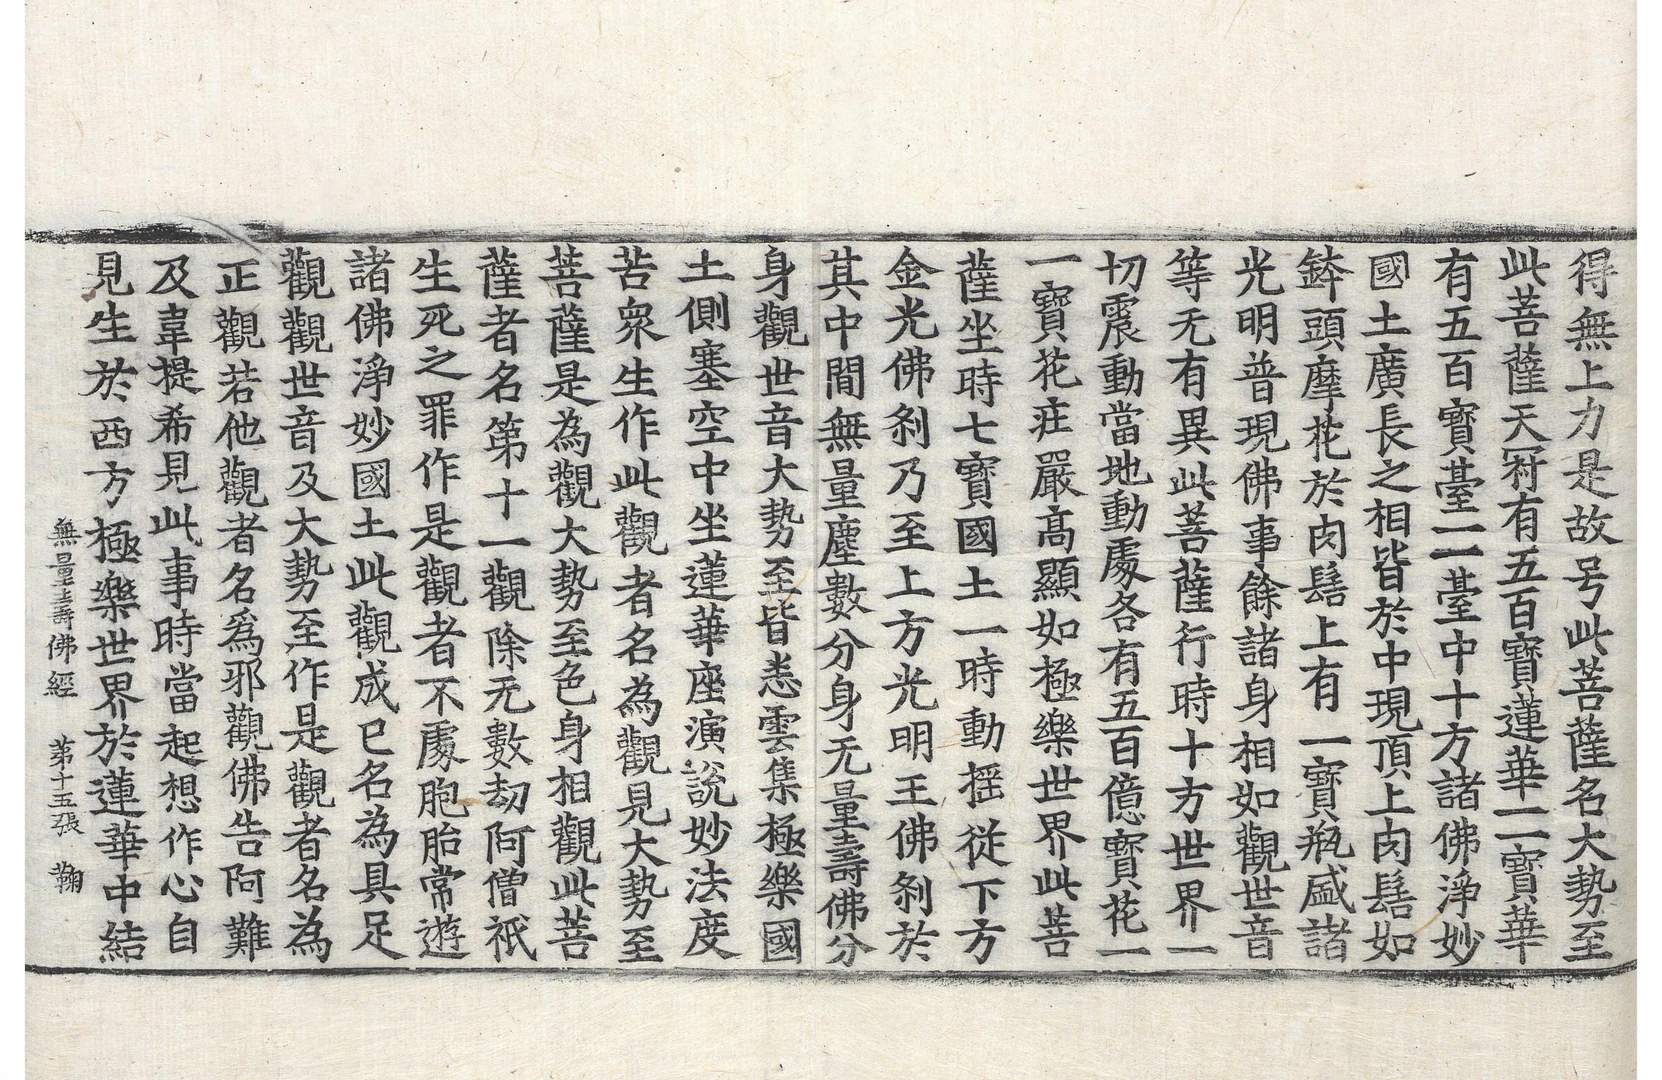 得無上力是故号此菩薩名大勢至
此菩薩天冠有五百寶蓮華一一寶華
有五百寶臺一一臺中十方諸佛淨妙
國土廣長之相皆於中現頂上肉髻如
鉢頭摩花於肉髻上有一寶瓶盛諸
光明普現佛事餘諸身相如觀世音
等无有異此菩薩行時十方世界一
切震動當地動處各有五百億寶花一
一寶花莊嚴髙顯如極樂世界此菩
薩坐時七寶國土一時動揺從下方
金光佛刹乃至上方光明王佛刹於
其中間無量塵數分身无量壽佛分
身觀世音大勢至皆悉雲集極樂國
土側塞空中坐蓮華座演說妙法度
苦衆生作此觀者名為觀見大勢至
菩薩是為觀大勢至色身相觀此菩
薩者名第十一觀除无數劫阿僧祇
生死之罪作是觀者不處胞胎常遊
諸佛淨妙國土此觀成已名為具足
觀觀世音及大勢至作是觀者名為
正觀若他觀者名爲邪觀佛告阿難
及韋提希見此事時當起想作心自
見生於西方極樂世界於蓮華中結
無量壽佛經 第十五張 鞠